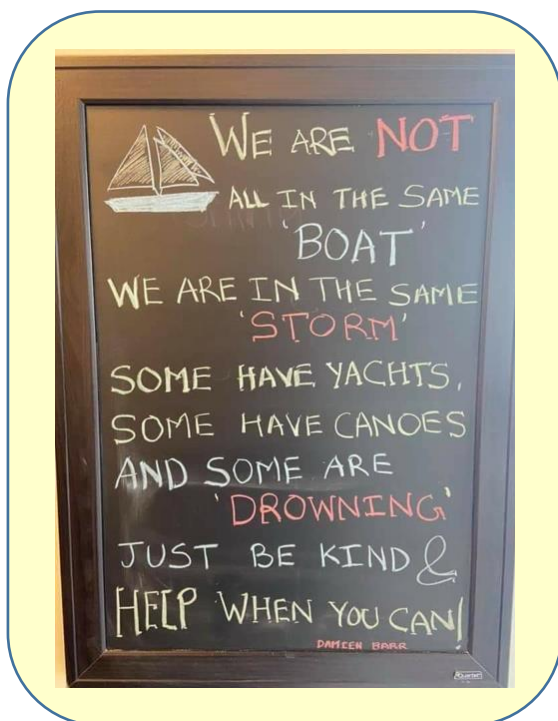 WE ARE NOT
ALL IN THE SAME
'BOAT'
WE ARE IN THE SAME
'STORM'
SOME HAVE YACHTS,
SOME HAVE CANOES
AND SOME ARE
'DROWNING'
JUST BE KIND &
HELP WHEN YOU CAN!
DAMIEN BARR
Quartet